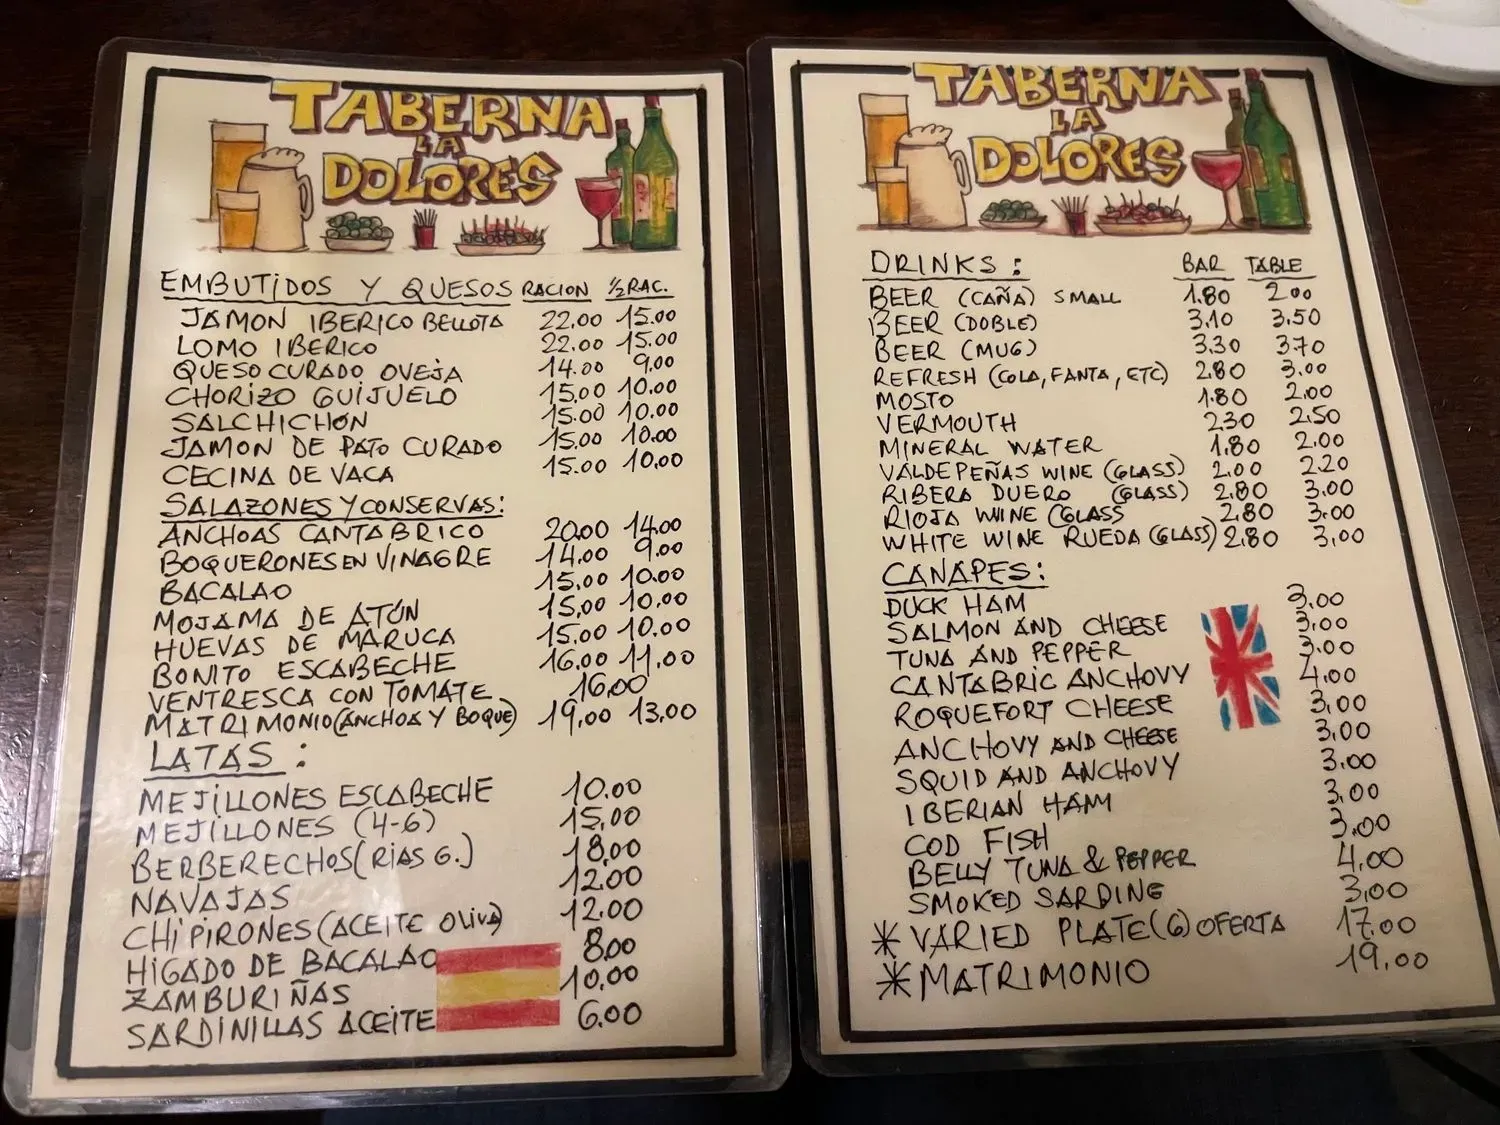 TABERNA
LA
DOLORES
EMBUTIDOS Y QUESOS RACION ½ RAC.
JAMON IBERICO BELLOTA 22,00 15.00
LOMO IBERICO 22.00 15.00
QUESO CURADO OVEJA 14.00 9,00
CHORIZO GUIJUELO 15,00 10.00
SALCHICHON 15.00 10.00
JAMON DE PATO CURADO 15.00 10.00
CECINA DE VACA 15.00 10,00
SALAZONES Y CONSERVAS:
ANCHOAS CANTABRICO 20,00 14.00
BOQUERONES EN VINAGRE 14.00 9.00
BACALAO 15,00 10.00
MOJAMA DE ATÚN 15,00 10.00
HUEVAS DE MARUCA 15,00 10.00
BONITO ESCABECHE 16.00 11,00
VENTRESCA CON TOMATE 16,00
MATRIMONIO (ANCHOA Y BOQUE) 19,00 13,00
LATAS:
MEJILLONES ESCABECHE 10.00
MEJILLONES (4-6) 15,00
BERBERECHOS (RIAS G.) 18,00
NAVAJAS 12.00
CHIPIRONES (ACEITE OLIVA) 12.00
HIGADO DE BACALAO 8,00
ZAMBURIÑAS 10,00
SARDINILLAS ACEITE 6,00
TABERNA
LA
DOLORES
DRINKS: BAR TABLE
BEER (CAÑA) SMALL 1.80 2.00
BEER (DOBLE) 3.10 3.50
BEER (MUG) 3.30 3.70
REFRESH (COLA, FANTA, ETC) 2.80 3.00
MOSTO 1.80 2.00
VERMOUTH 2.30 2.50
MINERAL WATER 1.80 2.00
VALDEPEÑAS WINE (GLASS) 2.00 2.20
RIBERA DUERO (GLASS) 2.80 3.00
RIOJA WINE (GLASS 2.80 3.00
WHITE WINE RUEDA (GLASS) 2.80 3,00
CANAPES:
DUCK HAM 3.00
SALMON AND CHEESE 3,00
TUNA AND PEPPER 3.00
CANTABRIC ANCHOVY 4,00
ROQUEFORT CHEESE 3,00
ANCHOVY AND CHEESE 3,00
SQUID AND ANCHOVY 3,00
IBERIAN HAM 3,00
COD FISH 3,00
BELLY TUNA & PEPPER 4,00
SMOKED SARDINE 3,00
* VARIED PLATE (6) OFERTA 17.00
* MATRIMONIO 19,00